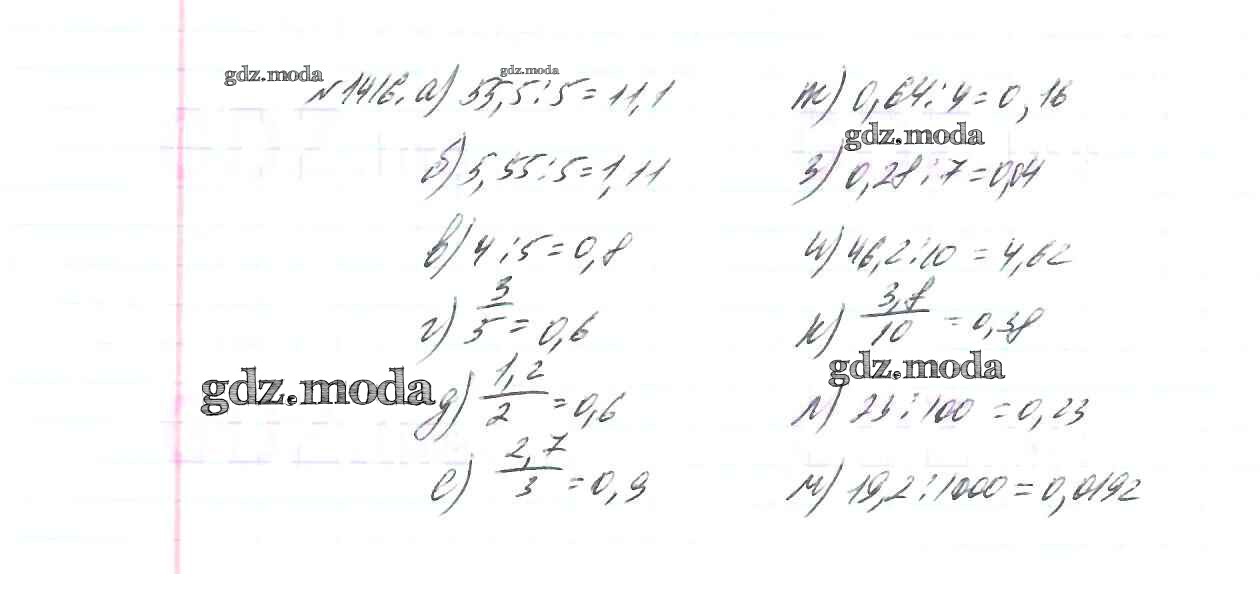 gdz.moda
gdz.moda
№1416. а) 55,5:5=11,1
б) 5,55:5=1,11
в) 4:5=0,8
г) 3/5=0,6
gdz.moda
д) 1,2/2=0,6
е) 2,7/3=0,9
ж) 0,64:4=0,16
gdz.moda
з) 0,28:7=0,04
и) 46,2:10=4,62
к) 3,8/10=0,38
gdz.moda
л) 23:100=0,23
м) 19,2:1000=0,0192